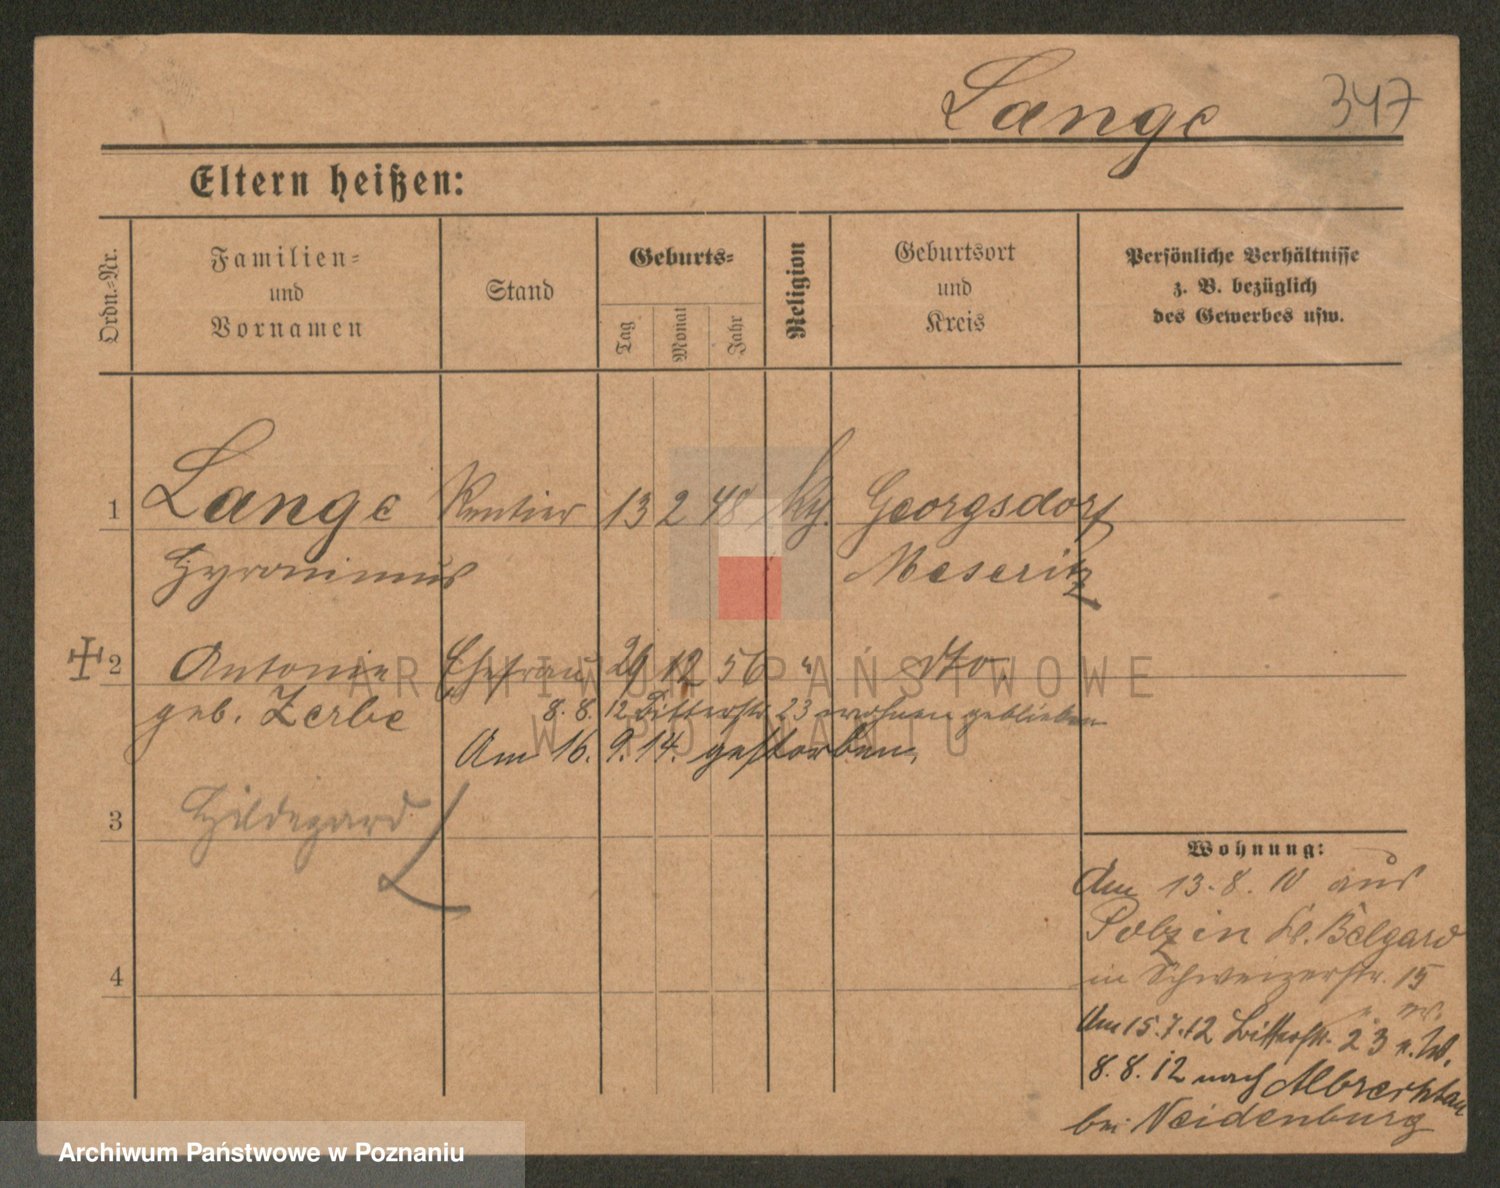 Lange 347
Eltern heißen:
Ordn.-Nr.
Familien-
und
Vornamen
Stand
Geburts-
Tag
Monat
Jahr
Religion
Geburtsort
und
Kreis
Persönliche Verhältnisse
z. B. bezüglich
des Gewerbes usw.
1 Lange Rentier 13 2 48 Georgsdorf
Hyronimus Meseritz
2 Antonie Ehefrau 29 12 56 " dto.
geb. Zerbe 8. 8. 12 23 wohnen geblieben
Am 16. 9. 14. gestorben.
3 Hildegard
4
Wohnung:
Am 13. 8. 10 aus
Polzin Kr. Belgard
in Schweizerstr. 15
Am 15. 7. 12 23
8. 8. 12 nach
bei Neidenburg
ARCHIWUM PAŃSTWOWE
W POZNANIU
Archiwum Państwowe w Poznaniu